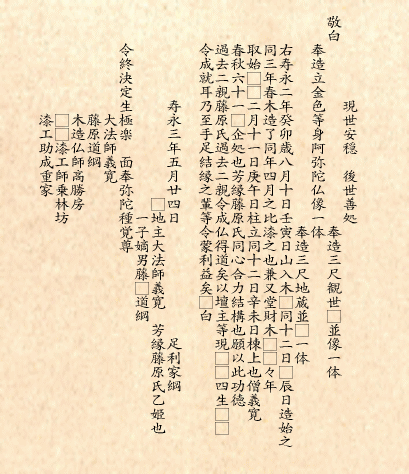 敬白
奉造立金色等身阿弥陀仏像一体
現世安穏　後世善処
奉造三尺観世□並像一体
奉造三尺地蔵並□一体
右寿永二年癸卯歳八月十日壬寅日山入木□同十二日□辰日造始之
同三年春木造了同年四月之比漆之也兼又堂財木□□々年
取始□□二月十一日庚午日柱立同十二日辛未日棟上也僧義寛
春秋六十一□企処也芳縁藤原氏同心合力結構也願以此功徳
過去二親藤原氏過去二親令成仏得道矣以壇主等現□□四生□□
令成就耳乃至手足結縁之輩等令蒙利益矣□白
寿永三年五月廿四日
足利家綱
□地主大法師義寛　芳縁藤原氏乙姫也
一子嫡男藤□道綱
令終決定生極楽　面奉弥陀種覚尊
大法師義寛
藤原道綱
木造仏師高勝房
□□漆工師乗林坊
漆工助成重家